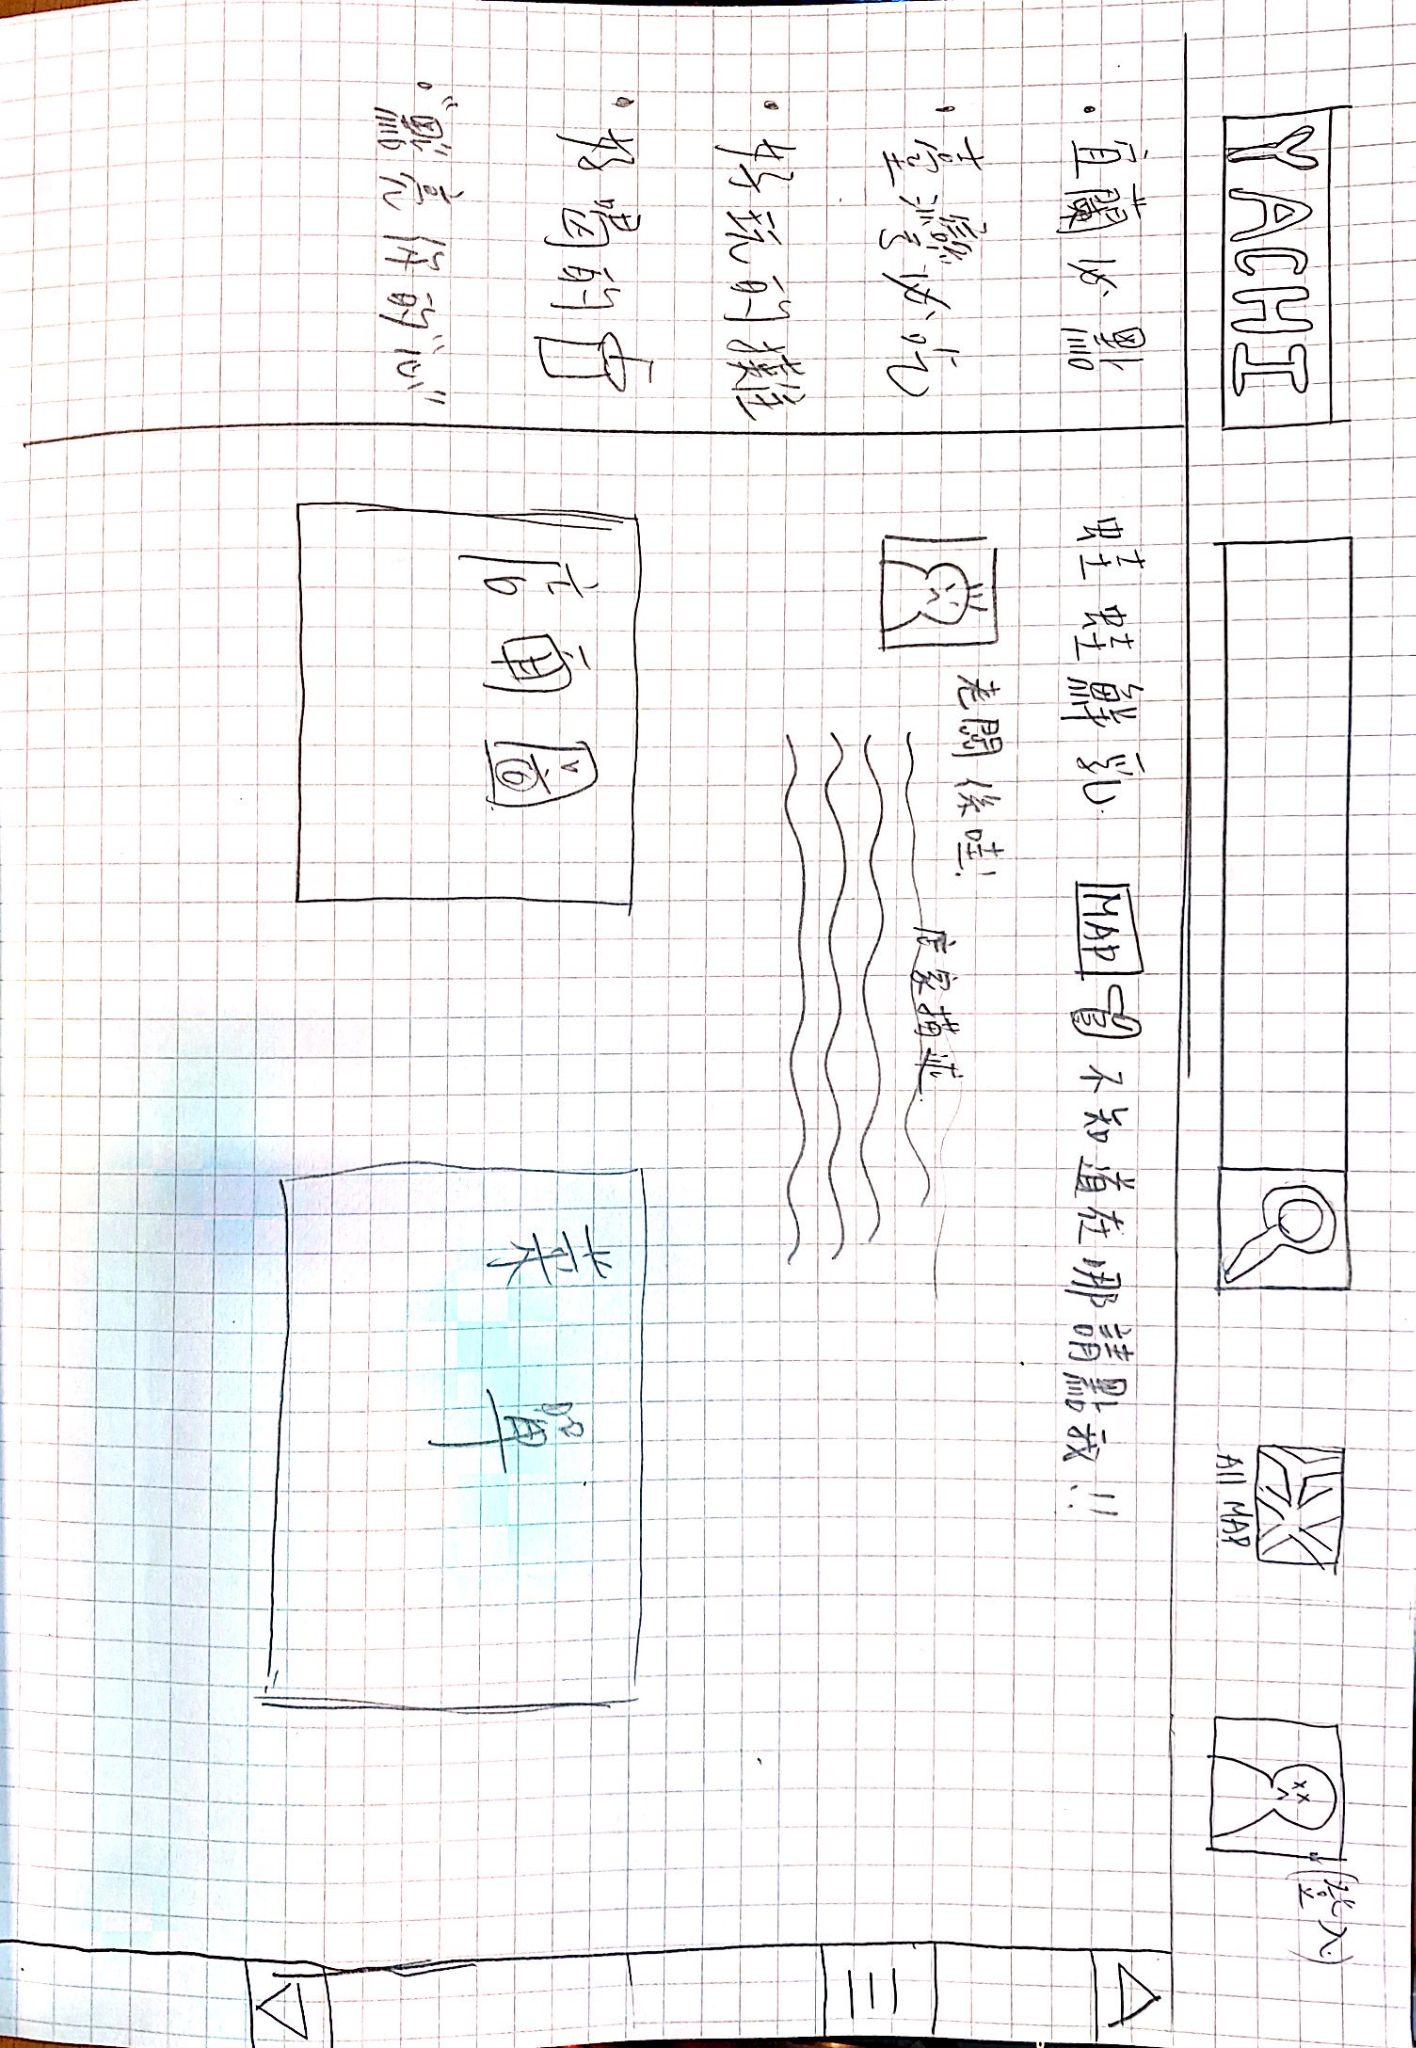 YACHI
All MAP
(登入)
宜蘭必點
臺灣必吃
好玩的撲
好喝的
"點亮你的心"
蛙蛙鮮乳 MAP 不知道在哪請點我!!
老闆係哇!
店家描述
店面圖
菜單